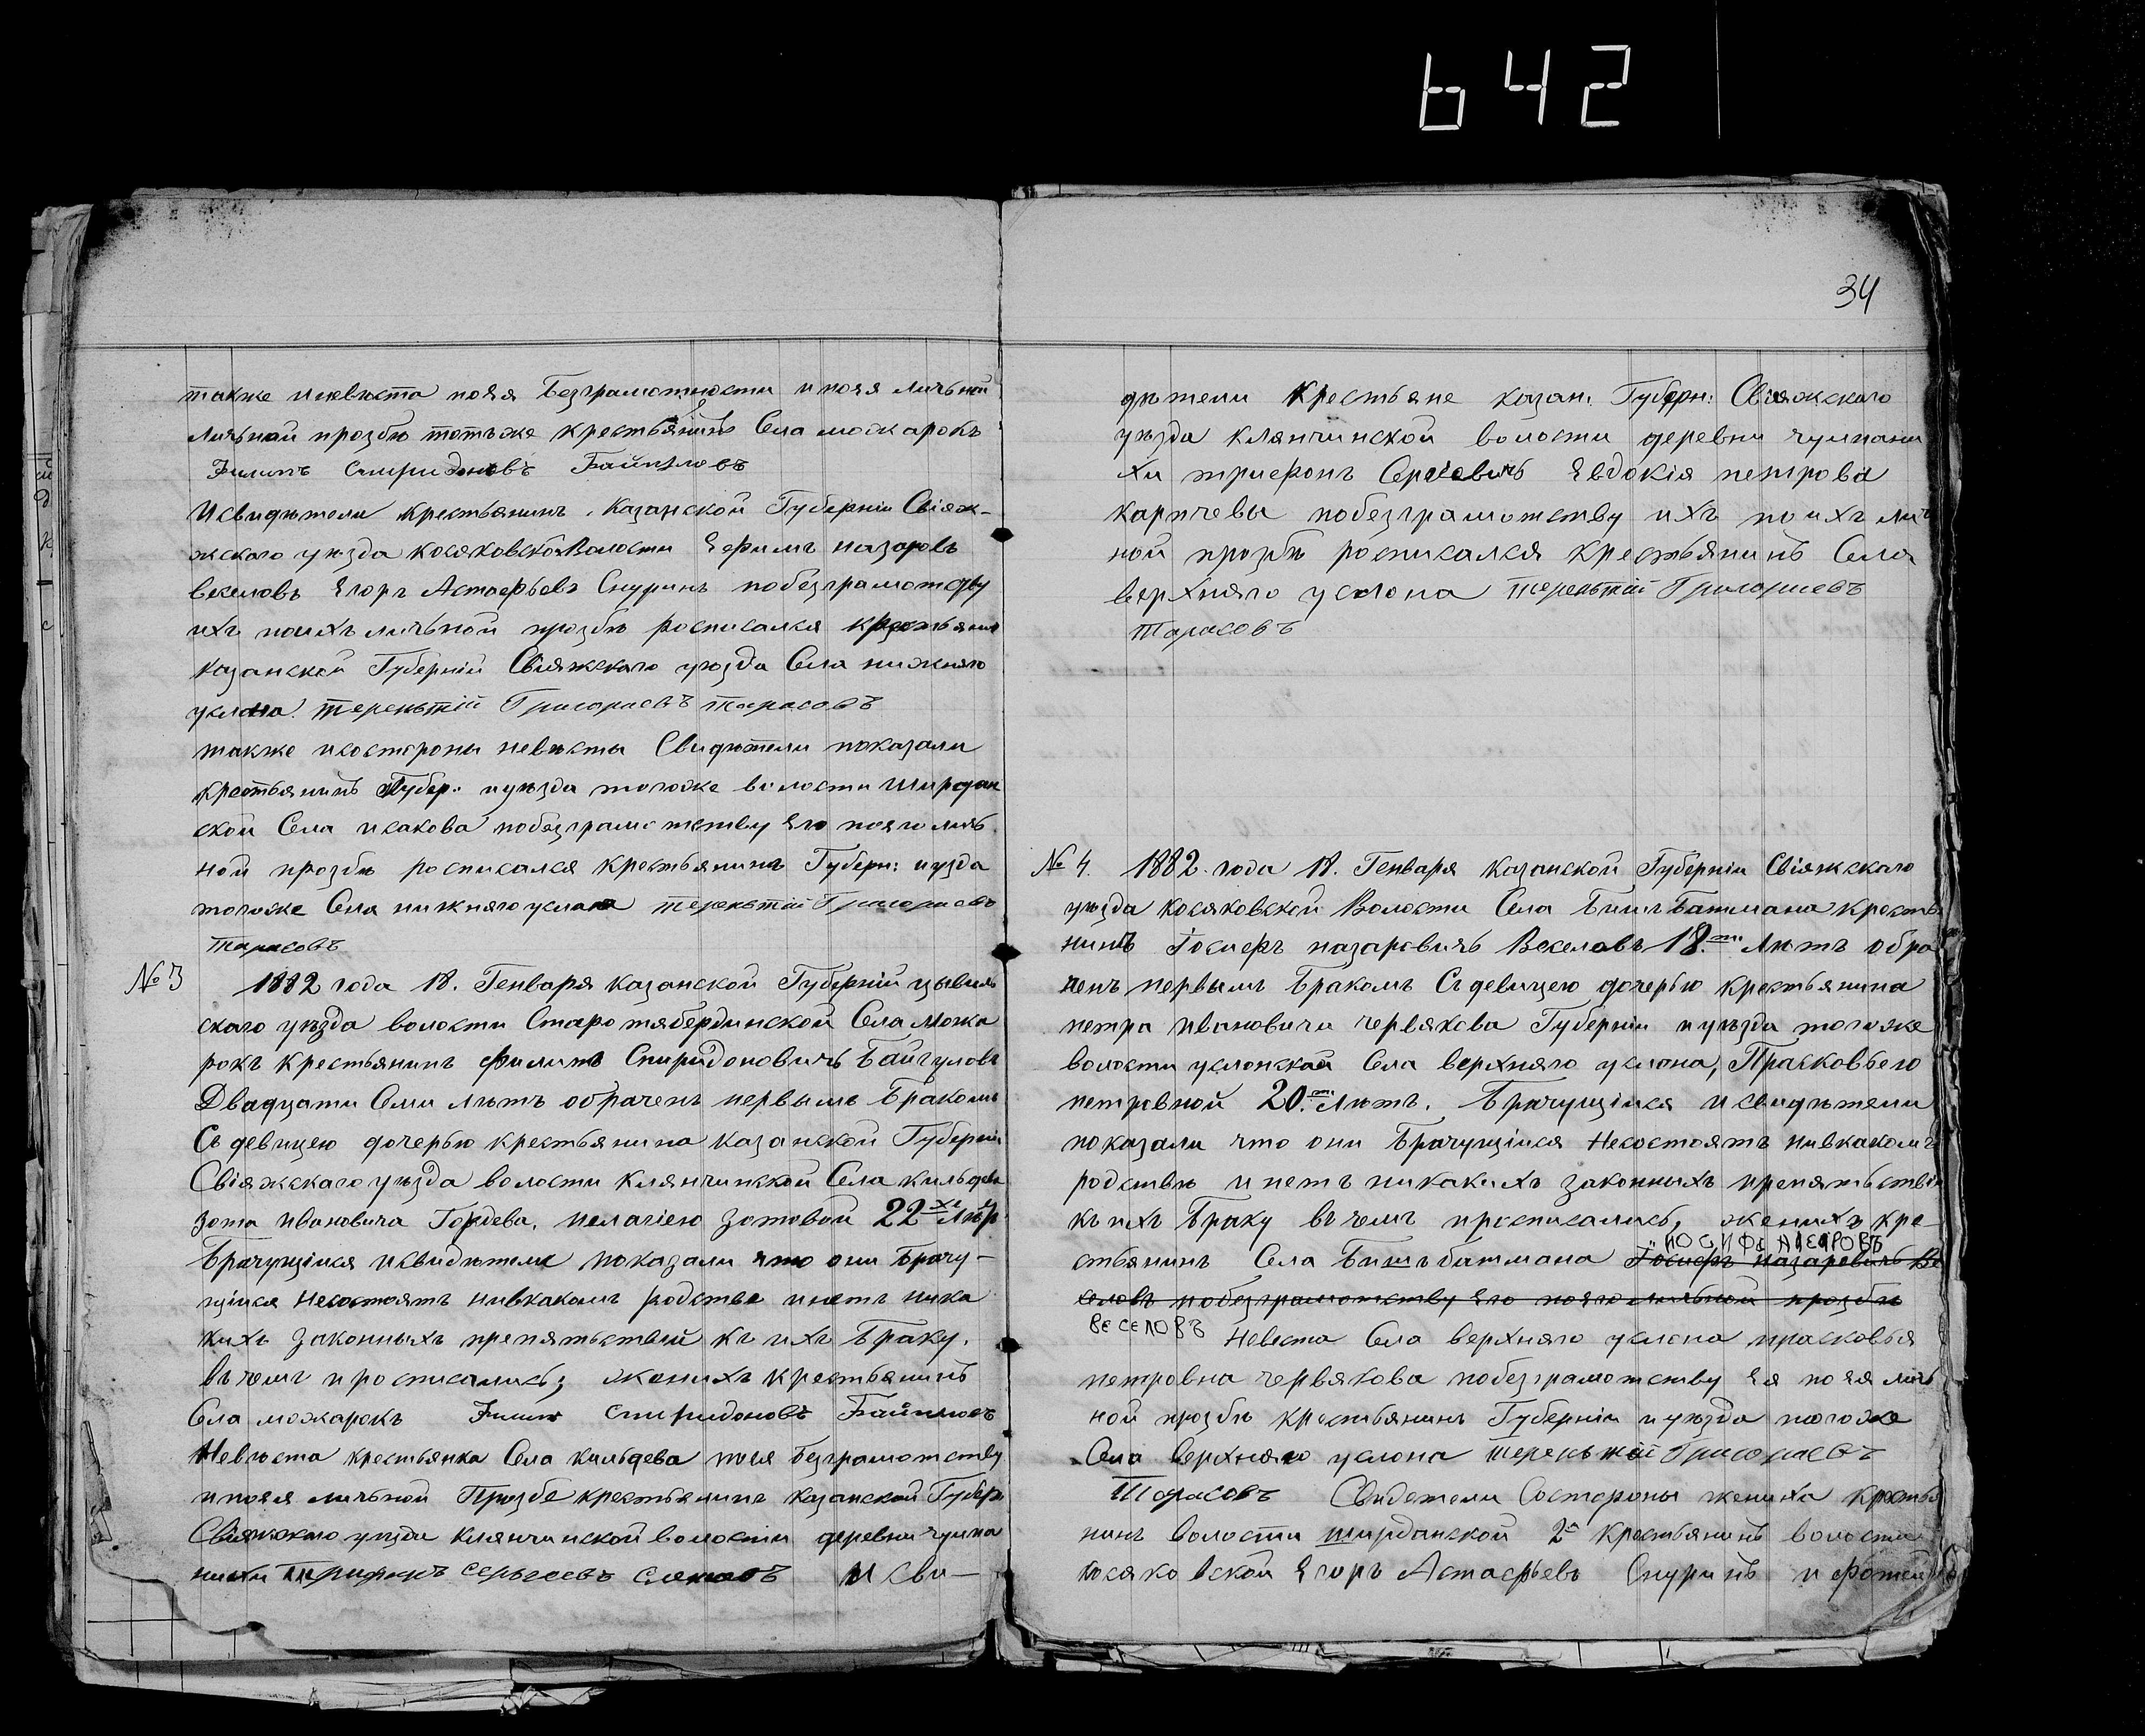 642
также и невѣста по ея Безграмотности и по ея личьной
личьной прозбѣ тотъже крестьянинъ Села можарокъ
Филипъ Спиридоновъ Байгуловъ
И свидѣтели крестьянинъ Казанской Губерніи Свіяж-
жского уѣзда косяковской Волости Ефимъ назаровъ
векеловъ Егоръ Астафьевъ Снуринъ побезграмотству
ихъ поихъ личьной прозбѣ росписался крестьянинъ
казанской Губерній Свіяжскаго уѣзда Села нижняго
услона. терентій Григориевъ тарасовъ
также исостороны невѣсты Свидѣтели показали
крестьянинъ Губер: иуѣзда тогоже волости Ширдан
ской Села исакова побезграмотству Его поего личь
ной прозбѣ росписался крестьянинъ Губерн: иуѣзда
тогоже Села нижняго услона терентій Григориевъ
тарасовъ
№ 3 1882 года 18. Генваря казанской Губерній цывиль
скаго уѣзда волости Старотябердинской Села Можа
рокъ крестьянинъ Филипъ Спиридоновичь Байгуловъ
Двадцати Семи лѣтъ обрачень первымъ Бракомъ
Съ девицею дочерью крестьянина казанской Губерніи
Свіяжскаго уѣзда волости Клянчинской Села кильдева
зота ивановича Гордева, пелагіею зотовой 22 хъ Лѣтъ
Брачущіися исвидѣтели показали что они Брачу-
щіися несостоятъ нивкакомъ родстве инетъ ника
кихъ законныхъ препятьствий къ ихъ Браку.
въ чемъ ипросписались; женихъ крестьянинъ
Села можарокъ Филип Спиридоновъ Байгуловъ
Невѣста крестьянка Села кильдева поея безграмотству
ипоея личьной Прозбе крестьянинъ казанской Губер
Свіяжскаго уѣзда Клянчинской волости деревни чулпа
нихи Трифонъ Сергеевъ И Сви-
34
дѣтели крестьяне казан: Губерн: Свіяжскаго
уѣзда клянчинской волости деревни чулпани
хи трифонъ Сергіевичь Евдокія петрова
карпчевы побезграмотству ихъ поихъ лич
ной прозбѣ росписался крестьянинъ Села
верхняго услона терентій Григориевъ
Тарасовъ
№ 4. 1882. года 18. Генваря казанской Губерніи Свіяжскаго
уѣзда косяковской Волости Села Бишъ Батмана кресть
нинъ Іосифъ назаровичь Векеловъ 18.ти Лѣтъ обра
ченъ первымъ Бракомъ Съ девицею дочерью крестьянина
петра ивановича червякова Губерніи иуѣзда тогоже
волости услонской Села верхняго услона, Прасковьею
петровной 20.ти Лѣтъ. Брачущіися исвидѣтели
показали что они Брачущіися Несостоятъ нивкакомъ
родствѣ и нетъ никакихъ законныхъ препятьствіи
къ ихъ Браку въ чемъ ипросписались, женихъ кре-
ИОСИФЪ
стьянинъ Села Бишъбатмана Іосифъ назаровичь Ве
келовъ побезграмотству Его поего личьной прозбѣ
ВЕСЕЛОВЪ Невеста Села верхняго услона прасковья
петровна червякова побезграмотству Ея поея личь
ной прозбѣ крестьянинъ Губерніи иуѣзда тогоже
Села Верхняго услона терентій Григориевъ
Тарасовъ Свидетели Состороны жениха крестья
нинъ волости ширданской 2й крестьянинъ волости
косяковской Егоръ Астафьевъ Снуринъ и